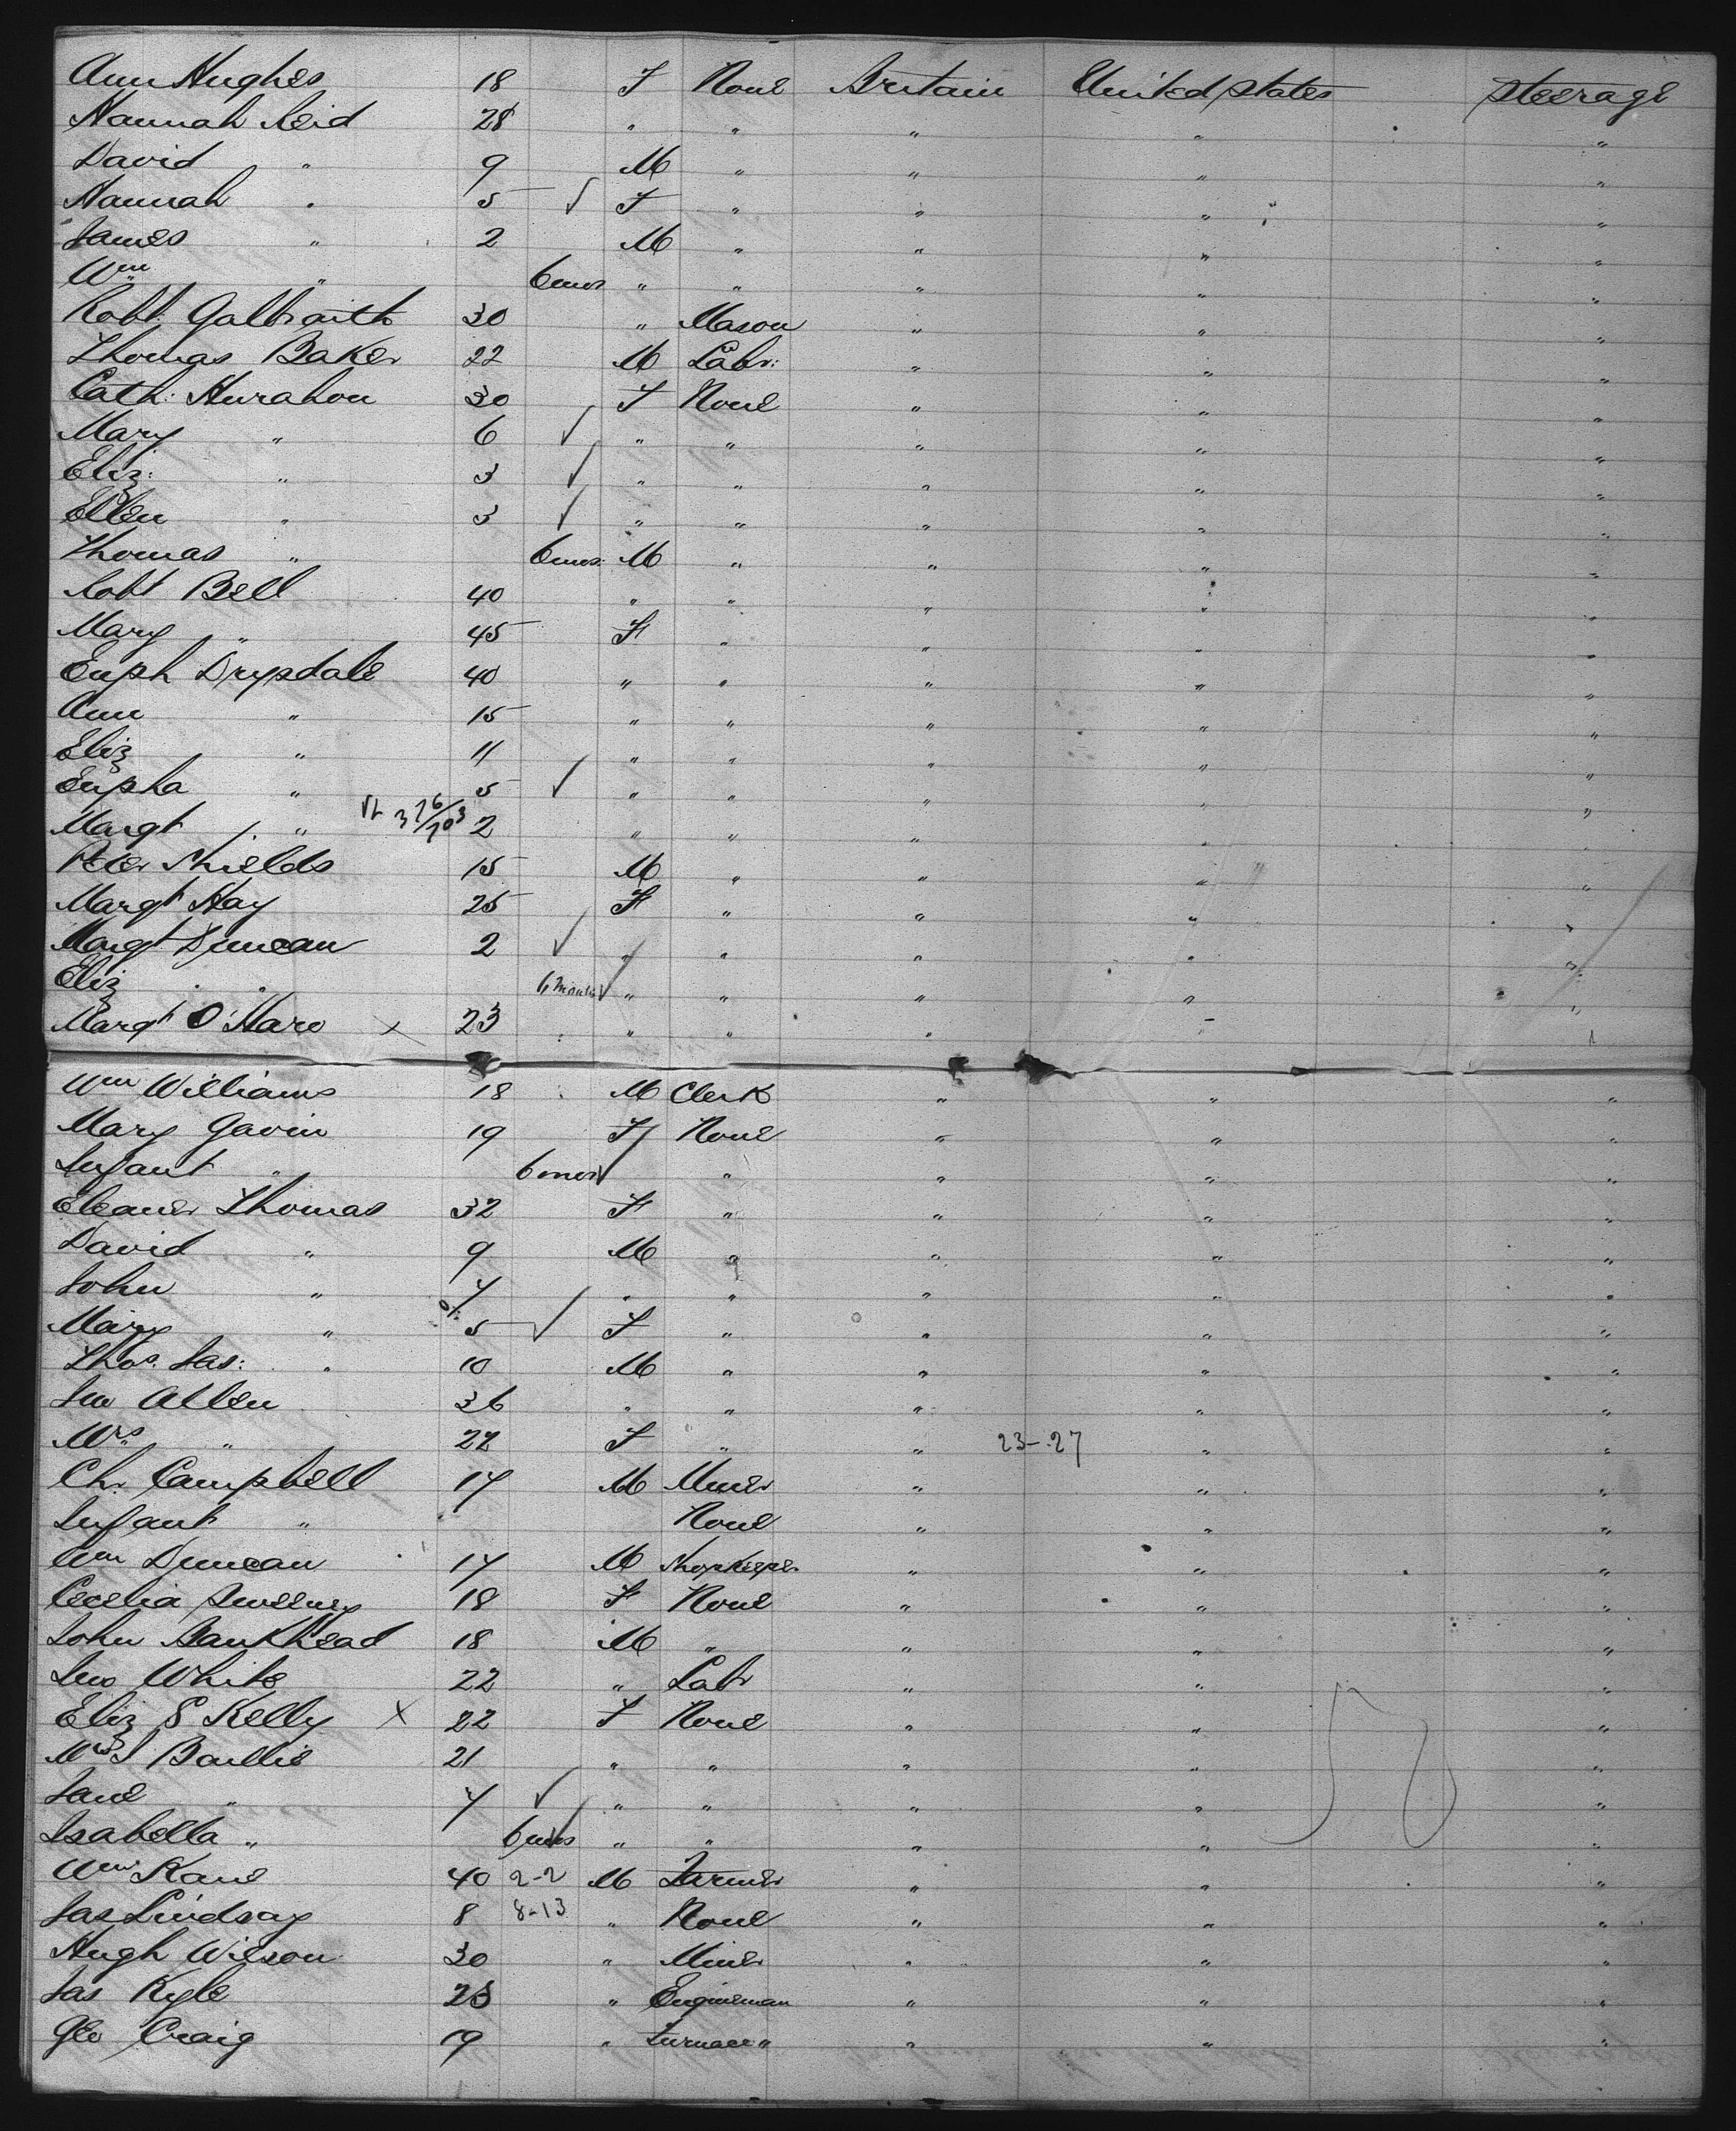 Ann Hughes 18 F None Britain United States Steerage
Hannah Reid 28 " " " " "
David " 9 M " " " "
Hannah " 5 ✓ F " " " "
James " 2 M " " " "
Wm " 6 mos " " " " "
Robt. Galbraith 30 " Mason " " "
Thomas Baker 22 M Labr: " " "
Cath: Hurahon 30 F None " " "
Mary " 6 ✓ " " " " "
Eliz: " 3 ✓ " " " " "
Ellen " 3 ✓ " " " " "
Thomas " 6 mos: M " " " "
Robt Bell 40 " " " " "
Mary " 45 F " " " "
Euph Drysdale 40 " " " " "
Ann " 15 " " " " "
Eliz " 11 " " " " "
Eupha " 5 ✓ " " " " "
Margt " 2 " " " " "
Peter Shields 15 M " " " "
Margt Hay 25 F " " " "
Margt Duncan 2 ✓ " " " " "
Eliz " 6 Months ✓ " " " " "
Margt O'Hare x 23 " " " " "
Wm Williams 18 M Clerk " " "
Mary Gavin 19 F None " " "
Infant " 6 mos ✓ " " " "
Eleanor Thomas 32 F " " " "
David " 9 M " " " "
John " 7 " " " " "
Mary " 5 ✓ F " " " "
Thos. Jas: " 10 M " " " "
Jno Allen 36 " " " " "
Mrs " 22 F " " 23-27 " "
Ch. Campbell 17 M Miner " " "
Infant " None " " "
Wm Duncan 17 M Shopkeeper " " "
Cecelia Sweeney 18 F None " " "
John Bankhead 18 M " " " "
Jno White 22 " Labr " " "
Eliz S Kelly x 22 F None " " "
Mrs J Baillie 21 " " " " "
Jane " 4 ✓ " " " " "
Isabella " 6 mos ✓ " " " " "
Wm Kane 40 2-2 M Farmer " " "
Jas Lindsay 8 8-13 " None " " "
Hugh Wilson 30 " Miner " " "
Jas Kyle 23 " Engineman " " "
Geo Craig 19 " Furnace " " " "